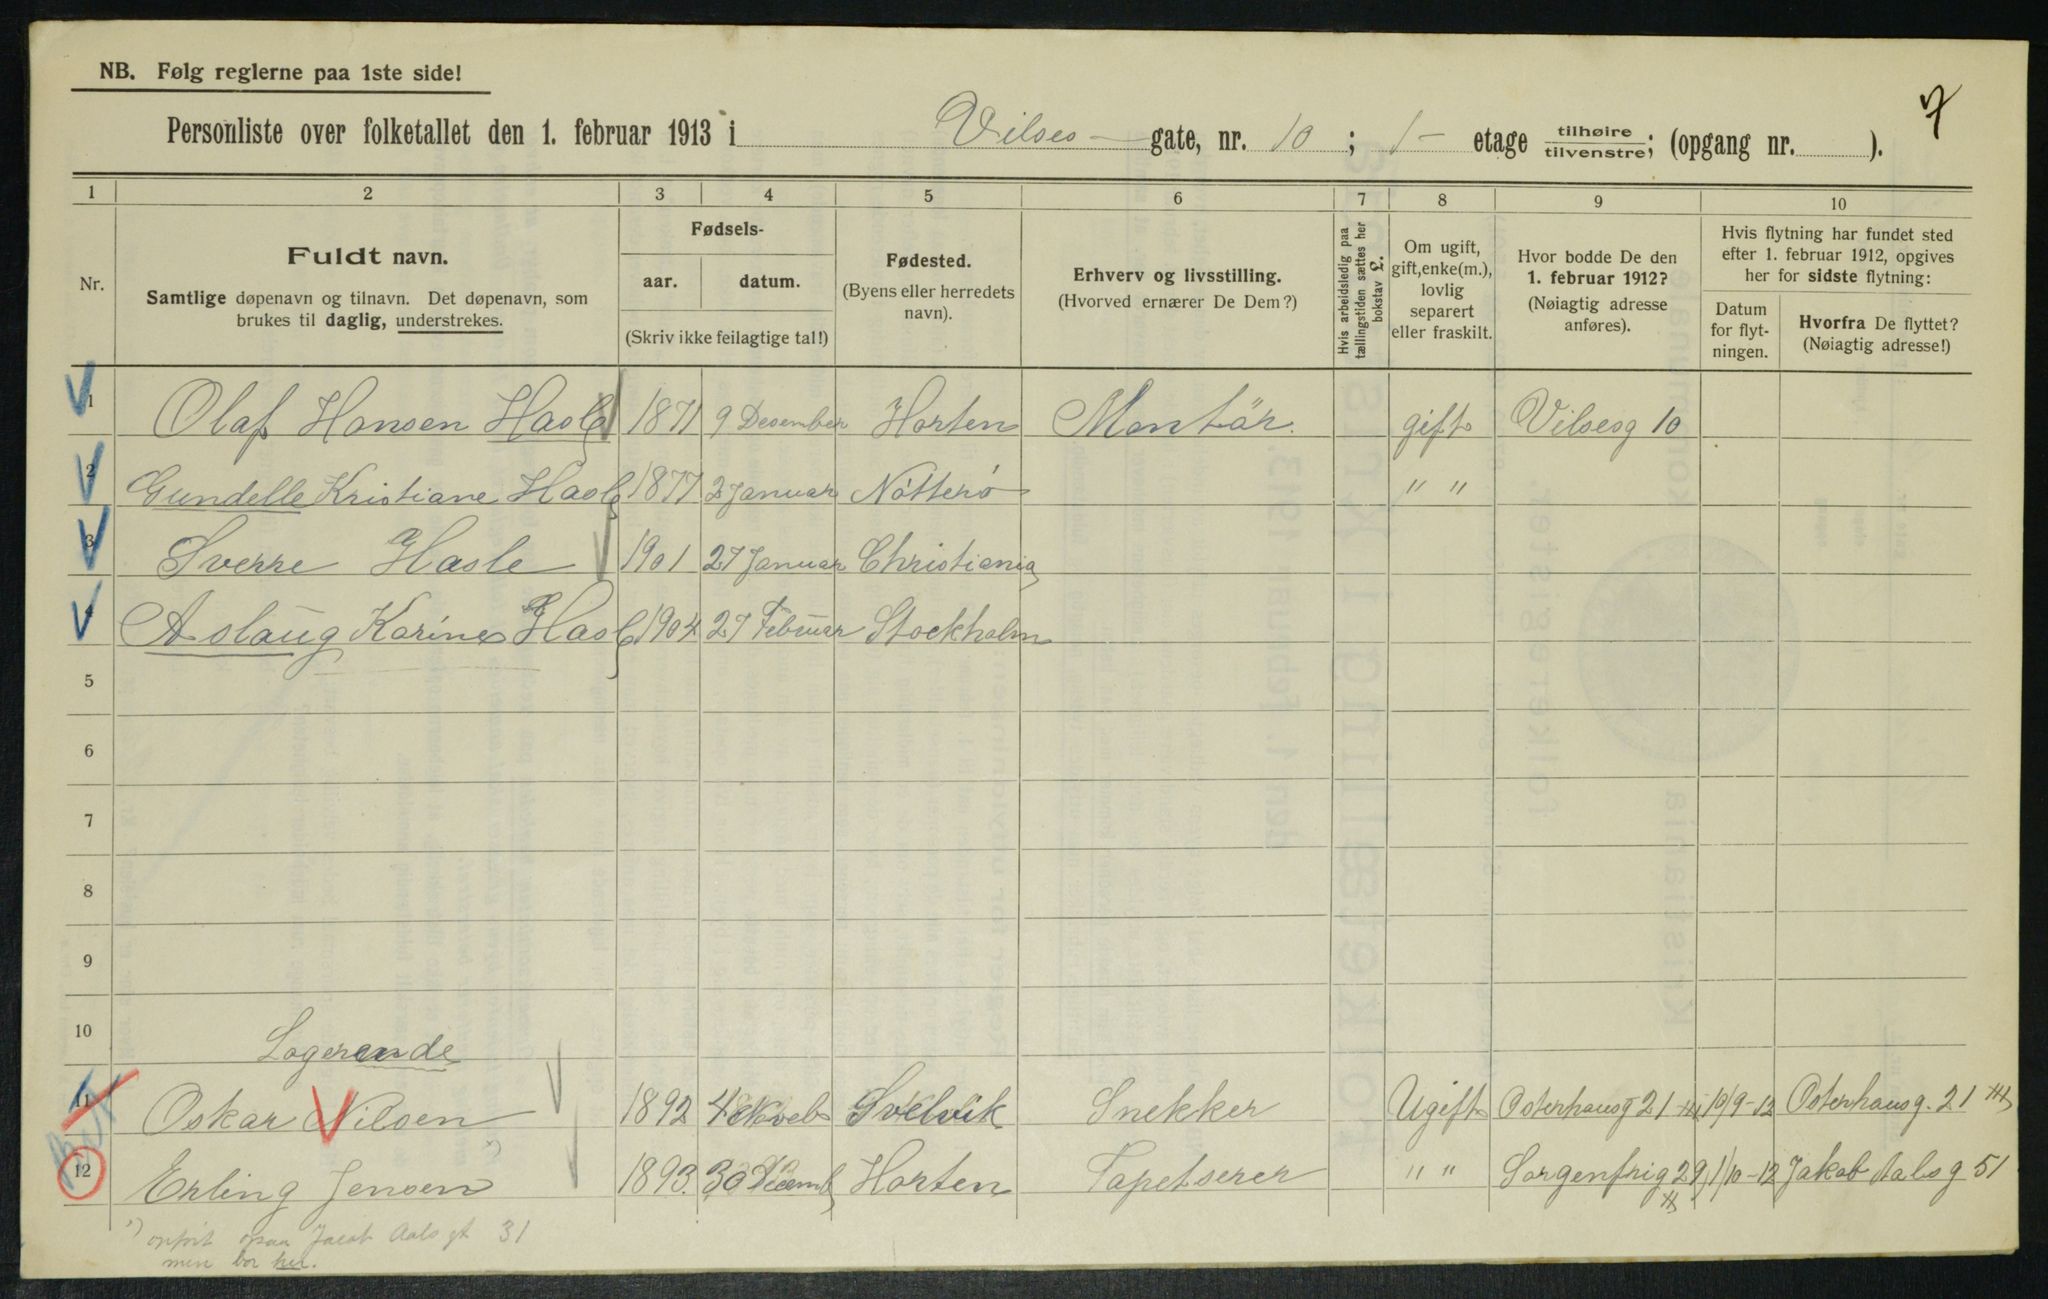 NB. Følg reglerne paa 1ste side!
7
Personliste over folketallet den 1. februar 1913 i Vilses gate, nr. 10 ; 1 - etage tilhøire / tilvenstre; (opgang nr. ).
1 2 3 4 5 6 7 8 9 10
Nr.
Fuldt navn.
Samtlige døpenavn og tilnavn. Det døpenavn, som
brukes til daglig, understrekes.
Fødsels-
aar. datum.
(Skriv ikke feilagtige tal!)
Fødested.
(Byens eller herredets
navn).
Erhverv og livsstilling.
(Hvorved ernærer De Dem?)
Hvis arbeidsledig paa
tællingstiden sættes her
bokstav L.
Om ugift,
gift, enke(m.),
lovlig
separert
eller fraskilt.
Hvor bodde De den
1. februar 1912?
(Nøiagtig adresse
anføres).
Hvis flytning har fundet sted
efter 1. februar 1912, opgives
her for sidste flytning:
Datum
for flyt-
ningen.
Hvorfra De flyttet?
(Nøiagtig adresse!)
1 Olaf Hansen Hasle 1871 9 Desember Horten Montör. gift Vilsesg 10
2 Gundelle Kristiane Hasle 1877 2 Januar Nötterö " "
3 Sverre Hasle 1901 27 Januar Christiania
4 Aslaug Karine Hasle 1904 27 Februar Stockholm
5
6
7
8
9
10
Logerende
11 Oskar Nilsen 1892 4 Noveb Svelvik Snekker Ugift Osterhausg 21 10/9-12 Osterhausg. 21
12 Erling Jensen *) 1893. 30 Decemb Horten Tapetserer " " Sorgenfrig 29 1/10-12 Jakob Aalsg 51
*) opført ogsaa Jacob Aals gt 31
men bor her.